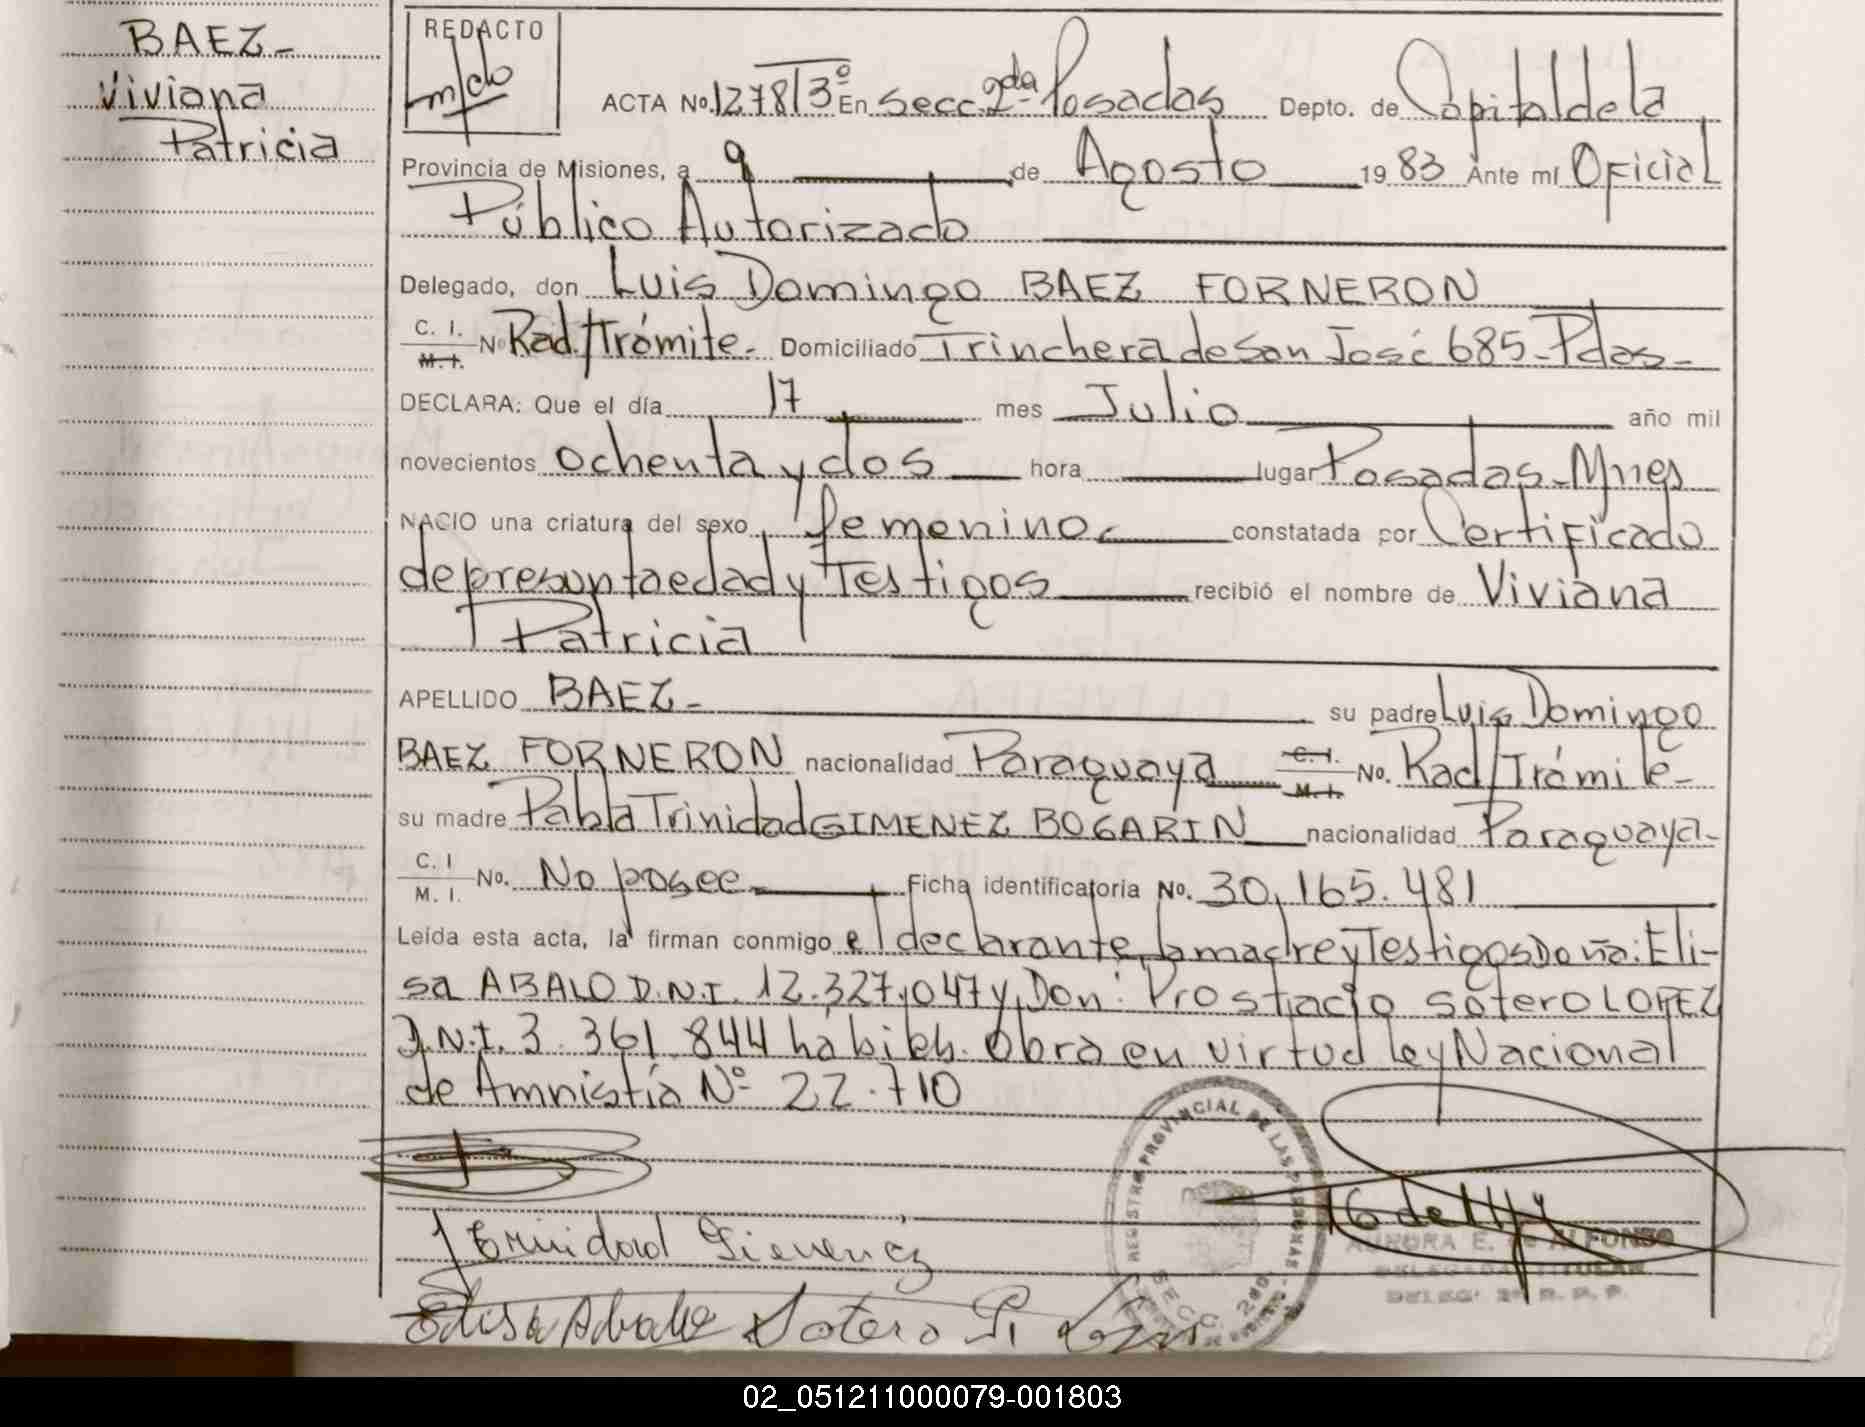 BAEZ-
Viviana
Patricia
REDACTO
ACTA No. 1278/3º En Secc. 2da Posadas Depto. de Capital de la
Provincia de Misiones, a 9 de Agosto 1983 Ante mi Oficial
Público Autorizado
Delegado, don Luis Domingo BAEZ FORNERON
C. I. M. I. Nº Rad/Trámite. Domiciliado Trinchera de San José 685-Pdas-
DECLARA: Que el día 17 mes Julio año mil
novecientos ochenta y dos hora lugar Posadas-Mnes
NACIO una criatura del sexo femenino constatada por Certificado
de presunta edad y Testigos recibió el nombre de Viviana
Patricia
APELLIDO BAEZ- su padre Luis Domingo
BAEZ FORNERON nacionalidad Paraguaya C. I. M. I. No. Rad/Trámite-
su madre Pabla Trinidad GIMENEZ BOGARIN nacionalidad Paraguaya-
C. I M. I. No. No posee Ficha identificatoria No. 30.165.481
Leída esta acta, la firman conmigo el declarante, la madre y Testigos Doña: Eli-
sa ABALO D.N.I. 12.327.047 y Don: Prostacio Sotero LOPEZ
D.N.I. 3.361.844 hábiles. Obra en virtud Ley Nacional
de Amnistía Nº 22.710
REGISTRO PROVINCIAL DE LAS PERSONAS
SECC. 2da.
AURORA E. de ALFONSO
DELEGADA TITULAR
DELEG. 2ª R. P. P.
Trinidad Gimenez
Elisa Abalo Sotero P. Lopez
02_051211000079-001803